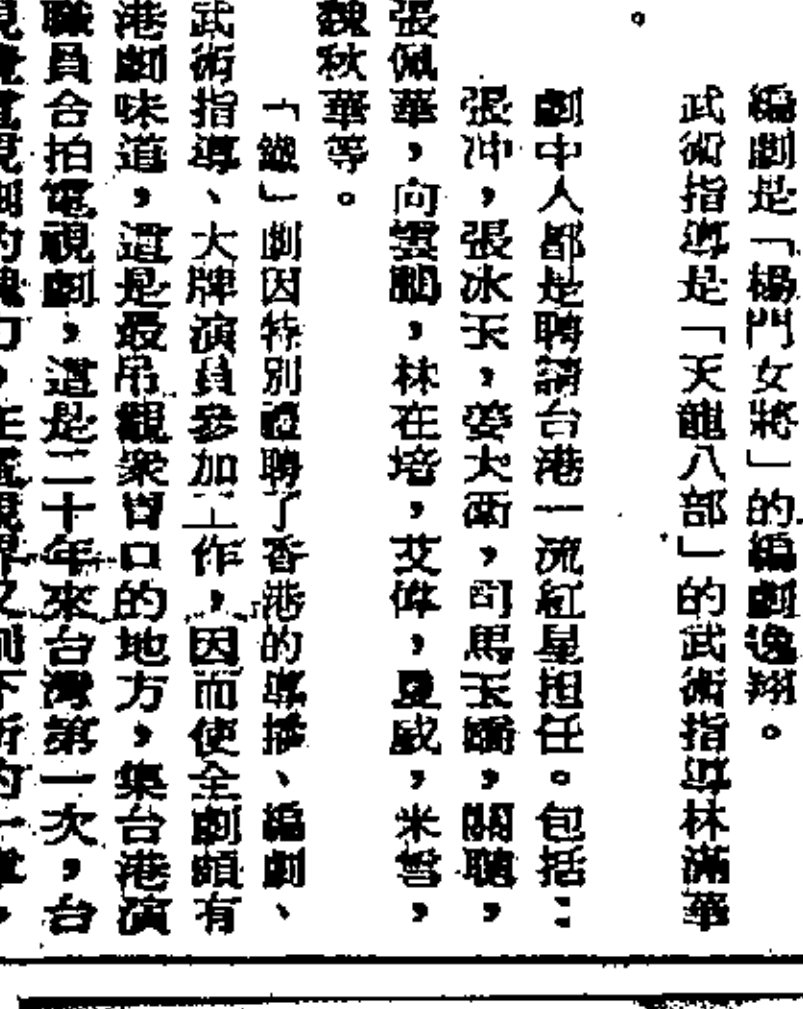 編劇是「楊門女將」的編劇逸翔。
武術指導是「天龍八部」的武術指導林滿華
。
劇中人都是聘請台港一流紅星担任。包括：
張冲，張冰玉，姜大衛，司馬玉嬌，關聰，
張佩華，向雲鵬，林在培，艾偉，夏威，米雪，
魏秋華等。
「鐵」劇因特別禮聘了香港的導播、編劇、
武術指導、大牌演員參加工作，因而使全劇頗有
港劇味道，這是最吊觀衆胃口的地方，集台港演
職員合拍電視劇，這是二十年來台灣第一次，台